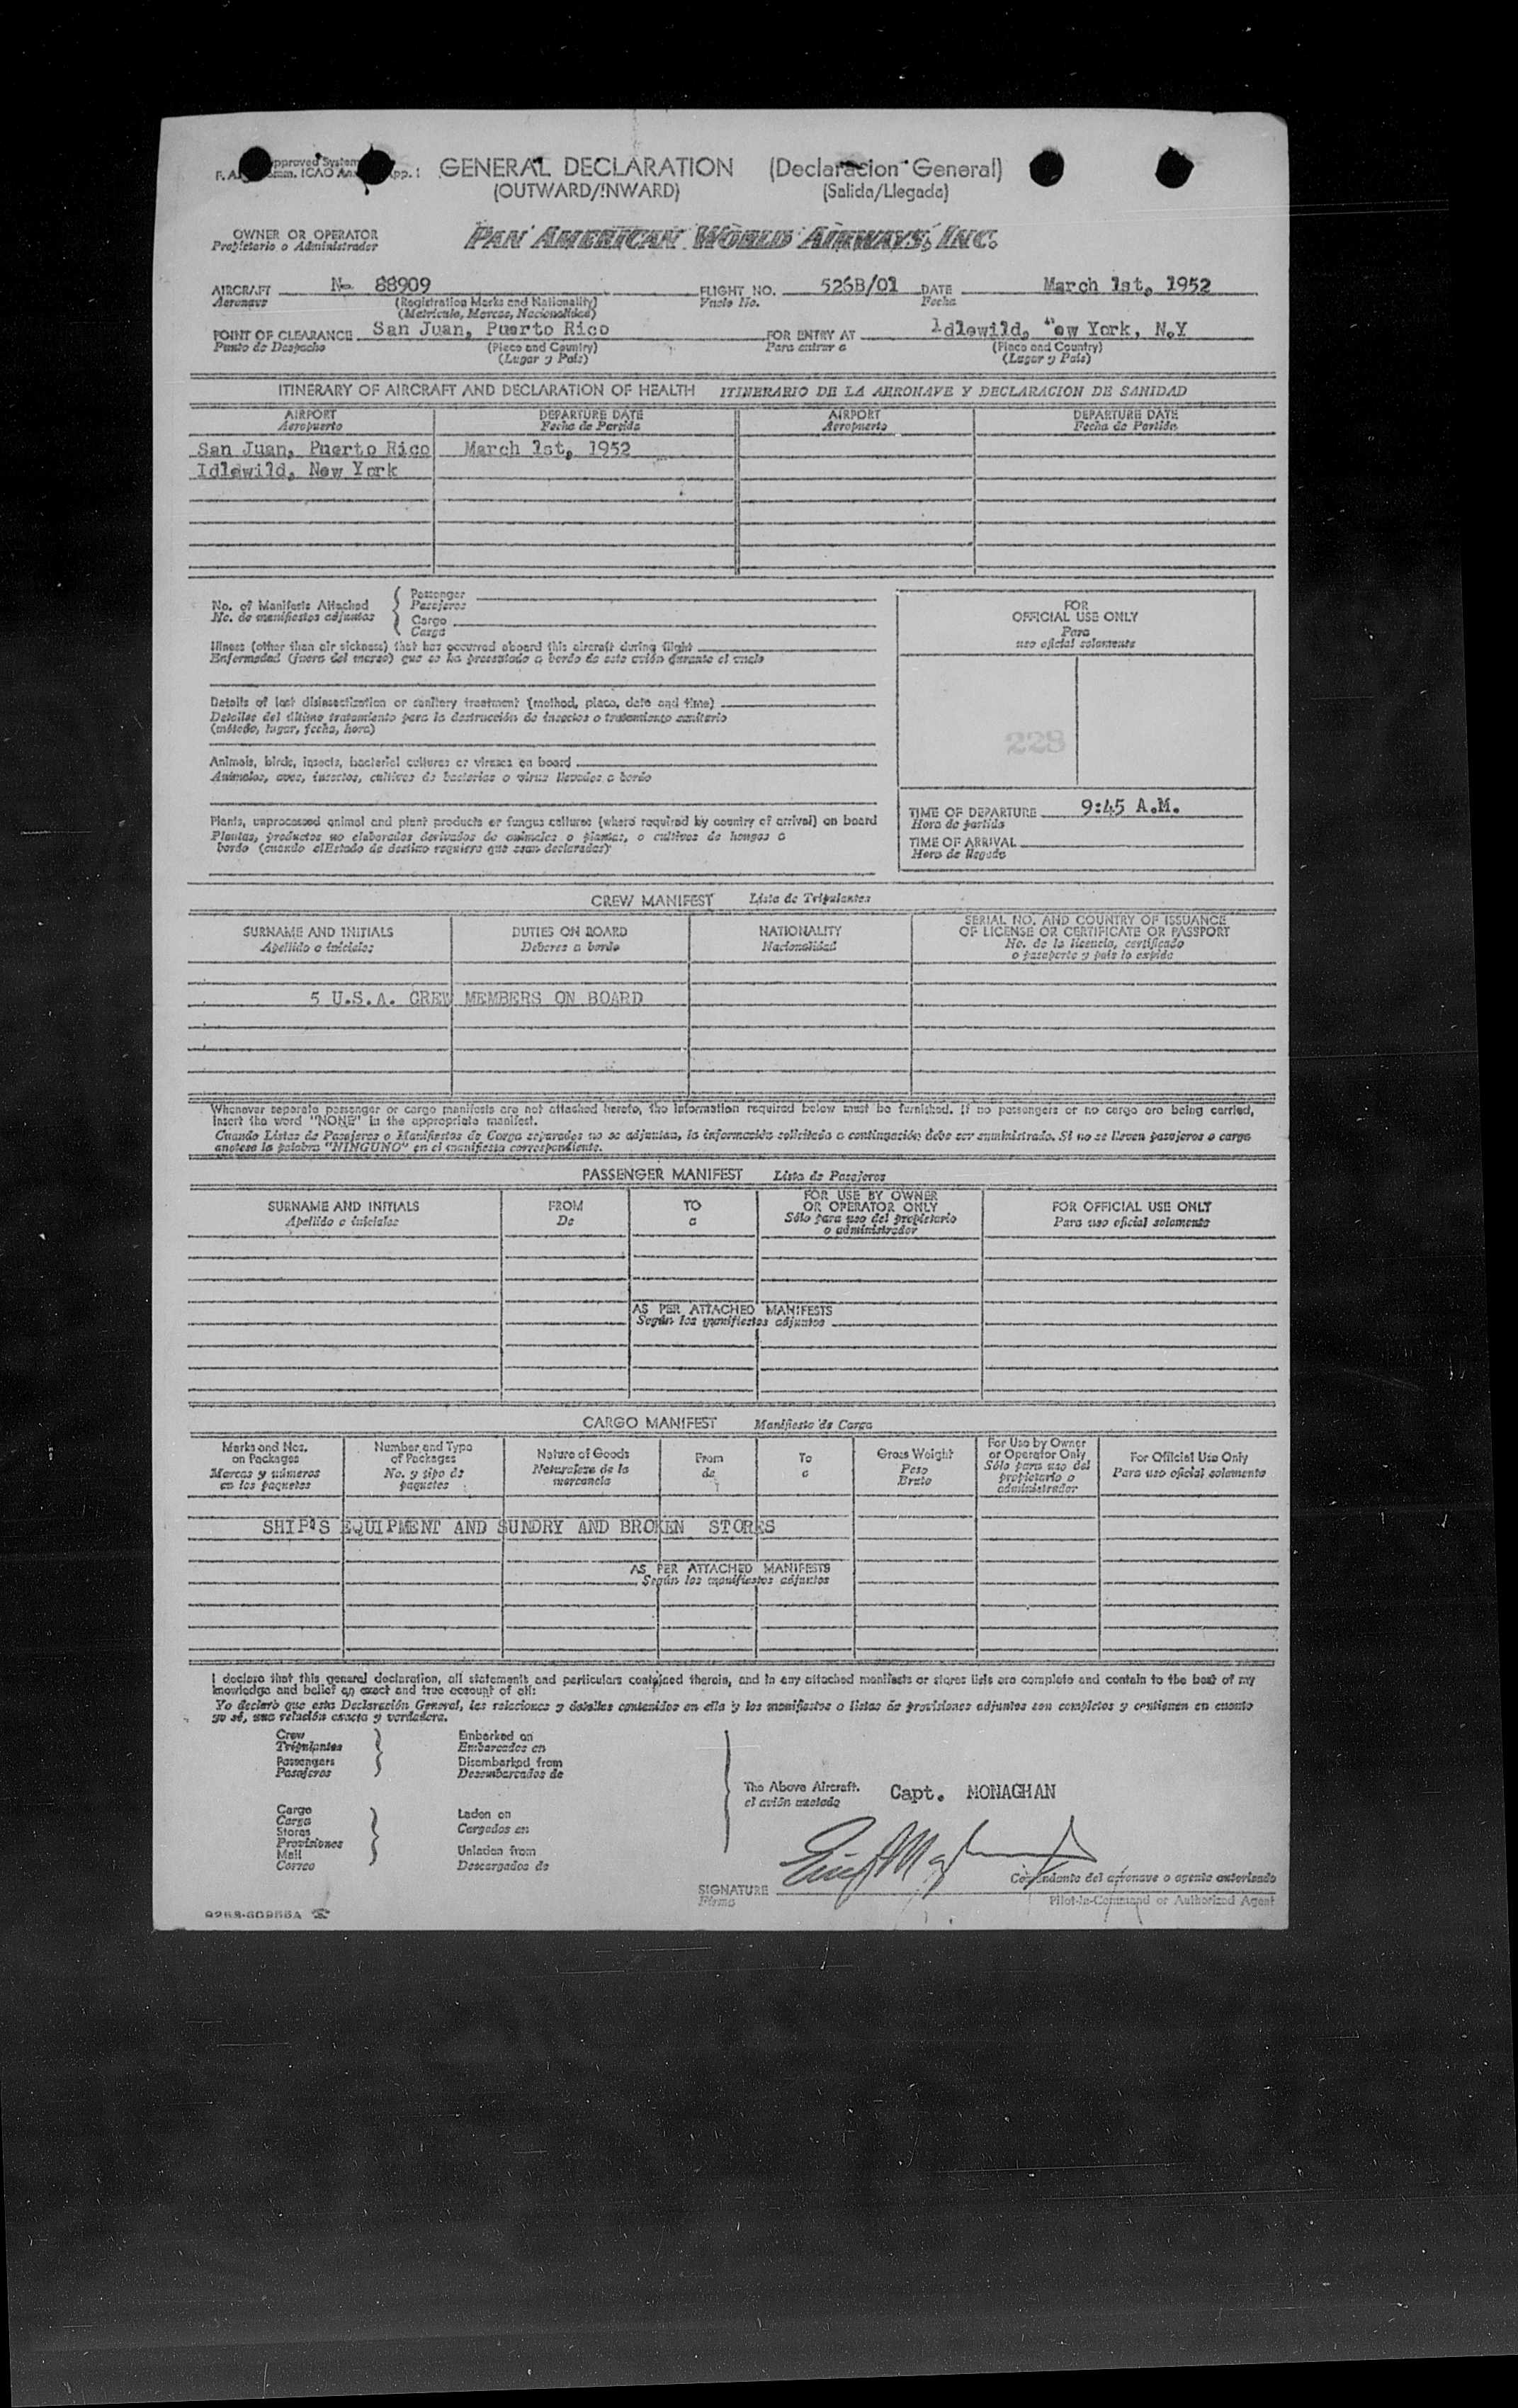 GENERAL DECLARATION (Declaracion General)
(OUTWARD/INWARD) (Salida/Llegada)
OWNER OR OPERATOR
Propietario o Administrador
PAN AMERICAN WORLD AIRWAYS, INC.
AIRCRAFT No 88909 FLIGHT NO. 526B/01 DATE March 1st, 1952
Aeronave (Registration Marks and Nationality) Vuelo No. Fecha
(Matricula, Marcas, Nacionalidad)
POINT OF CLEARANCE San Juan, Puerto Rico FOR ENTRY AT Idlewild, New York, N.Y
Punto de Despacho (Place and Country) Para entrar a (Place and Country)
(Lugar y País) (Lugar y País)
ITINERARY OF AIRCRAFT AND DECLARATION OF HEALTH ITINERARIO DE LA AERONAVE Y DECLARACION DE SANIDAD
AIRPORT DEPARTURE DATE AIRPORT DEPARTURE DATE
Aeropuerto Fecha de Partida Aeropuerto Fecha de Partida
San Juan, Puerto Rico March 1st, 1952
Idlewild, New York
No. of Manifests Attached
No. de manifiestos adjuntos
Passenger
Pasajeros
Cargo
Carga
Illness (other than air sickness) that has occurred aboard this aircraft during flight
Enfermedad (fuera del mareo) que se ha presentado a bordo de este avión durante el vuelo
Details of last disinsectization or sanitary treatment (method, place, date and time)
Detalles del último tratamiento para la destrucción de insectos o tratamiento sanitario
(método, lugar, fecha, hora)
Animals, birds, insects, bacterial cultures or viruses on board
Animales, aves, insectos, cultivos de bacterias o virus llevados a bordo
Plants, unprocessed animal and plant products or fungus cultures (where required by country of arrival) on board
Plantas, productos no elaborados derivados de animales o plantas, o cultivos de hongos a
bordo (cuando elEstado de destino requiera que sean declarados)
FOR
OFFICIAL USE ONLY
Para
uso oficial solamente
228
TIME OF DEPARTURE 9:45 A.M.
Hora de partida
TIME OF ARRIVAL
Hora de llegada
CREW MANIFEST Lista de Tripulantes
SURNAME AND INITIALS DUTIES ON BOARD NATIONALITY SERIAL NO. AND COUNTRY OF ISSUANCE
OF LICENSE OR CERTIFICATE OR PASSPORT
Apellido e iniciales Deberes a bordo Nacionalidad No. de la licencia, certificado
o pasaporte y país lo expida
5 U.S.A. CREW MEMBERS ON BOARD
Whenever separate passenger or cargo manifests are not attached hereto, the information required below must be furnished. If no passengers or no cargo are being carried,
insert the word "NONE" in the appropriate manifest.
Cuando Listas de Pasajeros o Manifiestos de Carga separados no se adjuntan, la información solicitada a continuación debe ser suministrada. Si no se lleven pasajeros o carga
anotese la palabra "NINGUNO" en el manifiesto correspondiente.
PASSENGER MANIFEST Lista de Pasajeros
SURNAME AND INITIALS FROM TO FOR USE BY OWNER
OR OPERATOR ONLY FOR OFFICIAL USE ONLY
Apellido e iniciales De a Sólo para uso del propietario
o administrador Para uso oficial solamente
AS PER ATTACHED MANIFESTS
Según los manifiestos adjuntos
CARGO MANIFEST Manifiesto de Carga
Marks and Nos.
on Packages
Marcas y números
en los paquetes
Number and Type
of Packages
No. y tipo de
paquetes
Nature of Goods
Naturaleza de la
mercancía
From
de
To
a
Gross Weight
Peso
Bruto
For Use by Owner
or Operator Only
Sólo para uso del
propietario o
administrador
For Official Use Only
Para uso oficial solamente
SHIP'S EQUIPMENT AND SUNDRY AND BROKEN STORES
AS PER ATTACHED MANIFESTS
Según los manifiestos adjuntos
I declare that this general declaration, all statements and particulars contained therein, and in any attached manifests or stores lists are complete and contain to the best of my
knowledge and belief an exact and true account of all:
Yo declaro que esta Declaración General, las relaciones y detalles contenidos en ella y los manifiestos o listas de provisiones adjuntos son completos y contienen en cuanto
yo sé, una relación exacta y verdadera.
Crew
Tripulantes
Passengers
Pasajeros
Embarked on
Embarcados en
Disembarked from
Desembarcados de
Cargo
Carga
Stores
Provisiones
Mail
Correo
Laden on
Cargados en
Unladen from
Descargados de
The Above Aircraft.
el avión anotado
Capt. MONAGHAN
Comandante del aeronave o agente autorizado
SIGNATURE
Firma
Pilot-in-Command or Authorized Agent